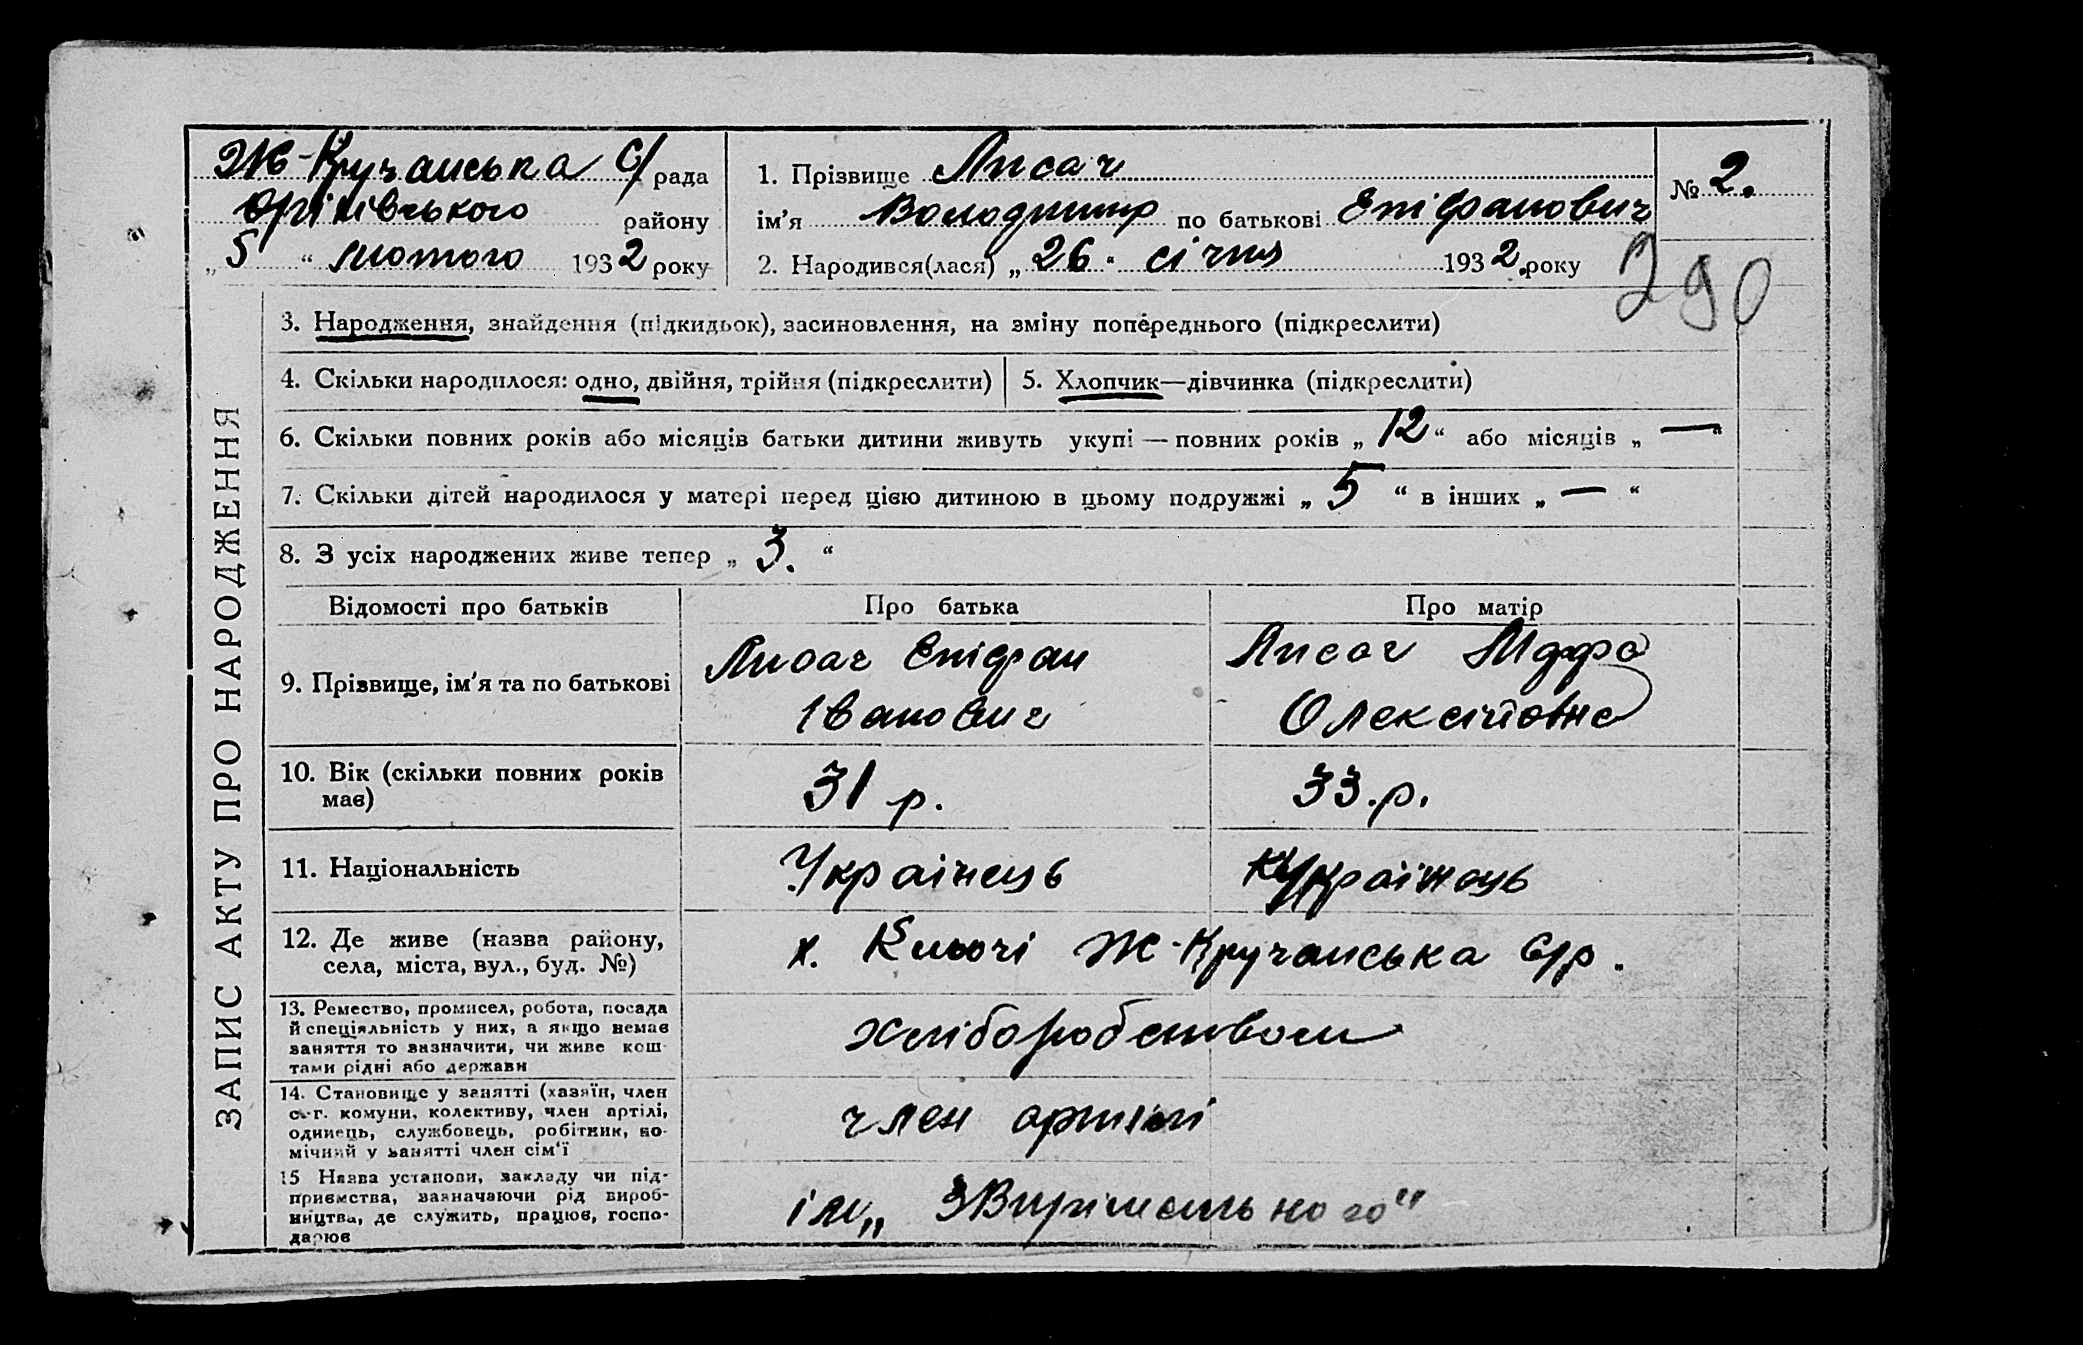 Ж-Кручанська С/рада
Оржівського району
„5“ лютого 1932 року
1. Прізвище Лисач
ім'я Володимир по батькові Епіфанович
2. Народився(лася) „26“ січня 1932 року
№ 2.
290
3. Народження, знайдення (підкидьок), засиновлення, на зміну попереднього (підкреслити)
4. Скільки народилося: одно, двійня, трійня (підкреслити)
5. Хлопчик—дівчинка (підкреслити)
6. Скільки повних років або місяців батьки дитини живуть укупі — повних років „12“ або місяців „—“
7. Скільки дітей народилося у матері перед цією дитиною в цьому подружжі „5“ в інших „—“
8. З усіх народжених живе тепер „3.“
ЗАПИС АКТУ ПРО НАРОДЖЕННЯ
Відомості про батьків
Про батька
Про матір
9. Прізвище, ім'я та по батькові
Лисач Епіфан
Іванович
Лисач
Олексіївна
10. Вік (скільки повних років
має)
31 р.
33.р.
11. Національність
Українець
Українець
12. Де живе (назва району,
села, міста, вул., буд. №)
х. Ключі Ж-Кручанська С/р.
13. Ремество, промисел, робота, посада
й спеціяльність у них, а якщо немає
заняття то зазначити, чи живе кош-
тами рідні або держави
хліборобством
14. Становище у занятті (хазяїн, член
с.-г. комуни, колективу, член артілі,
одинець, службовець, робітник, по-
мічний у занятті член сім'ї
член артілі
15 Назва установи, закладу чи під-
приємства, зазначаючи рід вироб-
ництва, де служить, працює, госпо-
дарює
ім„